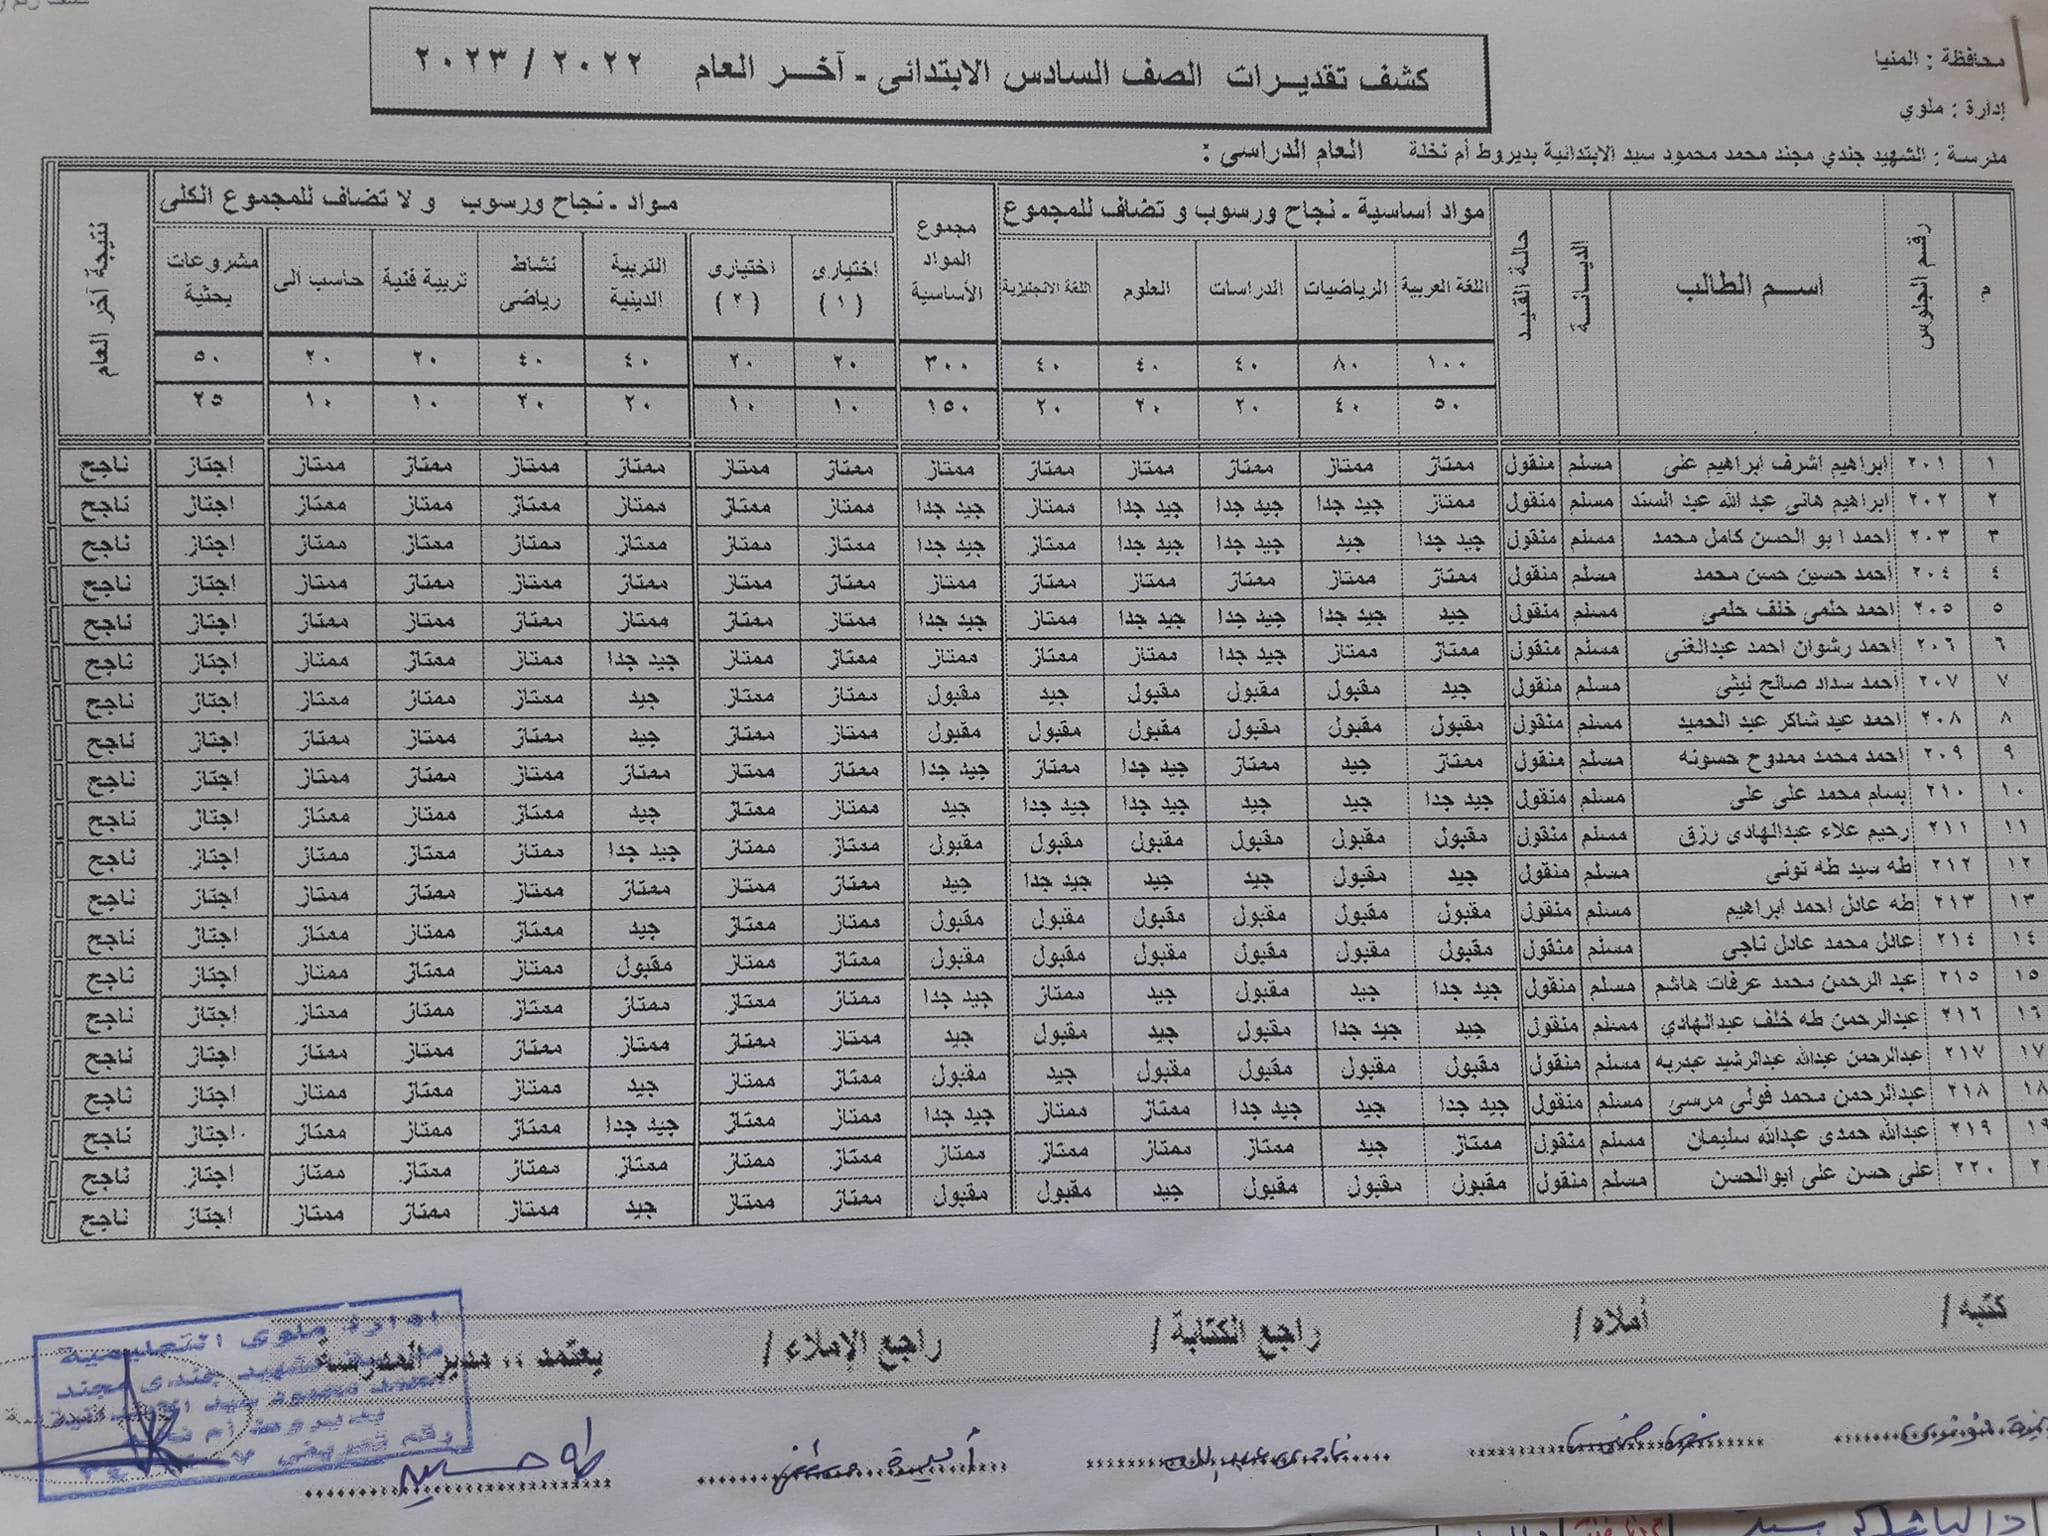 محافظة : المنيا
إدارة : ملوي
كشف تقديرات الصف السادس الابتدائى - آخر العام ٢٠٢٢ / ٢٠٢٣
مدرسة : الشهيد جندي مجند محمد محمود سيد الابتدائية بديروط أم نخلة العام الدراسى :
م رقم الجلوس اسم الطالب الديانة حالة القيد مواد أساسية - نجاح ورسوب و تضاف للمجموع مجموع المواد الأساسية مواد - نجاح ورسوب و لا تضاف للمجموع الكلى نتيجة آخر العام
اللغة العربية الرياضيات الدراسات العلوم اللغة الانجليزية اختيارى (١) اختيارى (٢) التربية الدينية نشاط رياضى تربية فنية حاسب الى مشروعات بحثية
١٠٠ ٨٠ ٤٠ ٤٠ ٤٠ ٣٠٠ ٢٠ ٢٠ ٤٠ ٤٠ ٢٠ ٢٠ ٥٠
٥٠ ٤٠ ٢٠ ٢٠ ٢٠ ١٥٠ ١٠ ١٠ ٢٠ ٢٠ ١٠ ١٠ ٢٥
١ ٢٠١ ابراهيم اشرف ابراهيم على مسلم منقول ممتاز ممتاز ممتاز ممتاز ممتاز ممتاز ممتاز ممتاز ممتاز ممتاز ممتاز ممتاز اجتاز ناجح
٢ ٢٠٢ ابراهيم هانى عبد الله عبد السند مسلم منقول ممتاز جيد جدا جيد جدا جيد جدا ممتاز جيد جدا ممتاز ممتاز ممتاز ممتاز ممتاز ممتاز اجتاز ناجح
٣ ٢٠٣ احمد ابو الحسن كامل محمد مسلم منقول جيد جدا جيد جيد جدا جيد جدا ممتاز جيد جدا ممتاز ممتاز ممتاز ممتاز ممتاز ممتاز اجتاز ناجح
٤ ٢٠٤ أحمد حسين حسن محمد مسلم منقول ممتاز ممتاز ممتاز ممتاز ممتاز ممتاز ممتاز ممتاز ممتاز ممتاز ممتاز ممتاز اجتاز ناجح
٥ ٢٠٥ احمد حلمى خلف حلمى مسلم منقول جيد جيد جدا جيد جدا جيد جدا ممتاز جيد جدا ممتاز ممتاز ممتاز ممتاز ممتاز ممتاز اجتاز ناجح
٦ ٢٠٦ احمد رشوان احمد عبدالغنى مسلم منقول ممتاز ممتاز جيد جدا ممتاز ممتاز ممتاز ممتاز ممتاز جيد جدا ممتاز ممتاز ممتاز اجتاز ناجح
٧ ٢٠٧ أحمد سداد صالح مسلم منقول جيد مقبول مقبول مقبول جيد مقبول ممتاز ممتاز جيد ممتاز ممتاز ممتاز اجتاز ناجح
٨ ٢٠٨ احمد عيد شاكر عبد الحميد مسلم منقول مقبول مقبول مقبول مقبول مقبول مقبول ممتاز ممتاز جيد ممتاز ممتاز ممتاز اجتاز ناجح
٩ ٢٠٩ احمد محمد ممدوح حسونه مسلم منقول ممتاز جيد ممتاز جيد جدا ممتاز جيد جدا ممتاز ممتاز ممتاز ممتاز ممتاز ممتاز اجتاز ناجح
١٠ ٢١٠ بسام محمد على على مسلم منقول جيد جدا جيد جيد جيد جدا جيد جدا جيد ممتاز ممتاز جيد ممتاز ممتاز ممتاز اجتاز ناجح
١١ ٢١١ رحيم علاء عبدالهادى رزق مسلم منقول مقبول مقبول مقبول مقبول مقبول مقبول ممتاز ممتاز جيد جدا ممتاز ممتاز ممتاز اجتاز ناجح
١٢ ٢١٢ طه سيد طه تونى مسلم منقول جيد مقبول جيد جيد جيد جدا جيد ممتاز ممتاز ممتاز ممتاز ممتاز ممتاز اجتاز ناجح
١٣ ٢١٣ طه عادل احمد ابراهيم مسلم منقول مقبول مقبول مقبول مقبول مقبول مقبول ممتاز ممتاز جيد ممتاز ممتاز ممتاز اجتاز ناجح
١٤ ٢١٤ عادل محمد عادل ناجى مسلم منقول مقبول مقبول مقبول مقبول مقبول مقبول ممتاز ممتاز مقبول ممتاز ممتاز ممتاز اجتاز ناجح
١٥ ٢١٥ عبد الرحمن محمد عرفات هاشم مسلم منقول جيد جدا جيد مقبول جيد ممتاز جيد جدا ممتاز ممتاز ممتاز ممتاز ممتاز ممتاز اجتاز ناجح
١٦ ٢١٦ عبدالرحمن طه خلف عبدالهادي مسلم منقول جيد جيد جدا مقبول جيد مقبول جيد ممتاز ممتاز ممتاز ممتاز ممتاز ممتاز اجتاز ناجح
١٧ ٢١٧ عبدالرحمن عبدالله عبدالرشيد عبدربه مسلم منقول مقبول مقبول مقبول مقبول جيد مقبول ممتاز ممتاز جيد ممتاز ممتاز ممتاز اجتاز ناجح
١٨ ٢١٨ عبدالرحمن محمد فولى مرسى مسلم منقول جيد جدا جيد جيد جدا ممتاز ممتاز جيد جدا ممتاز ممتاز جيد جدا ممتاز ممتاز ممتاز اجتاز ناجح
١٩ ٢١٩ عبدالله حمدى عبدالله سليمان مسلم منقول ممتاز جيد ممتاز ممتاز ممتاز ممتاز ممتاز ممتاز ممتاز ممتاز ممتاز ممتاز اجتاز ناجح
٢ ٢٢٠ على حسن على ابوالحسن مسلم منقول مقبول مقبول مقبول جيد مقبول مقبول ممتاز ممتاز جيد ممتاز ممتاز ممتاز اجتاز ناجح
كتبه / أملاه / راجع الكتابة / راجع الإملاء / يعتمد ،، مدير المدرسة
طه حسين
ادارة ملوى التعليمية
الشهيد جندى مجند
محمد محمود سيد
بديروط أم
رقم